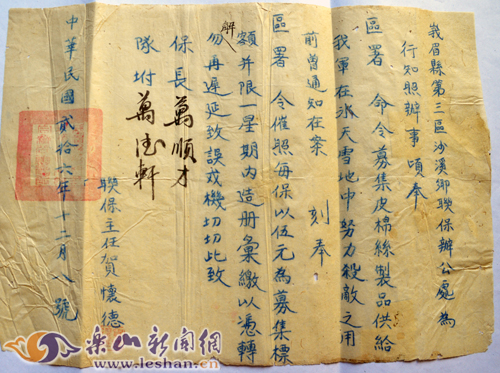 峩眉縣第三區沙溪鄉聯保辦公處為
行知照辦事頃奉
區署 命令募集皮棉絲製品供給
我軍在冰天雪地中努力殺敵之用
前曾通知在案 刻奉
區署 令催照每保以伍元為募集標
額并限一星期內造册彙繳以憑轉
解
勿再遲延致誤戎機切切此致
保長萬順才
隊附萬德軒
聯保主任賀懷德
中華民國貳拾六年十二月八號
乐山新闻网
www.leshan.cn